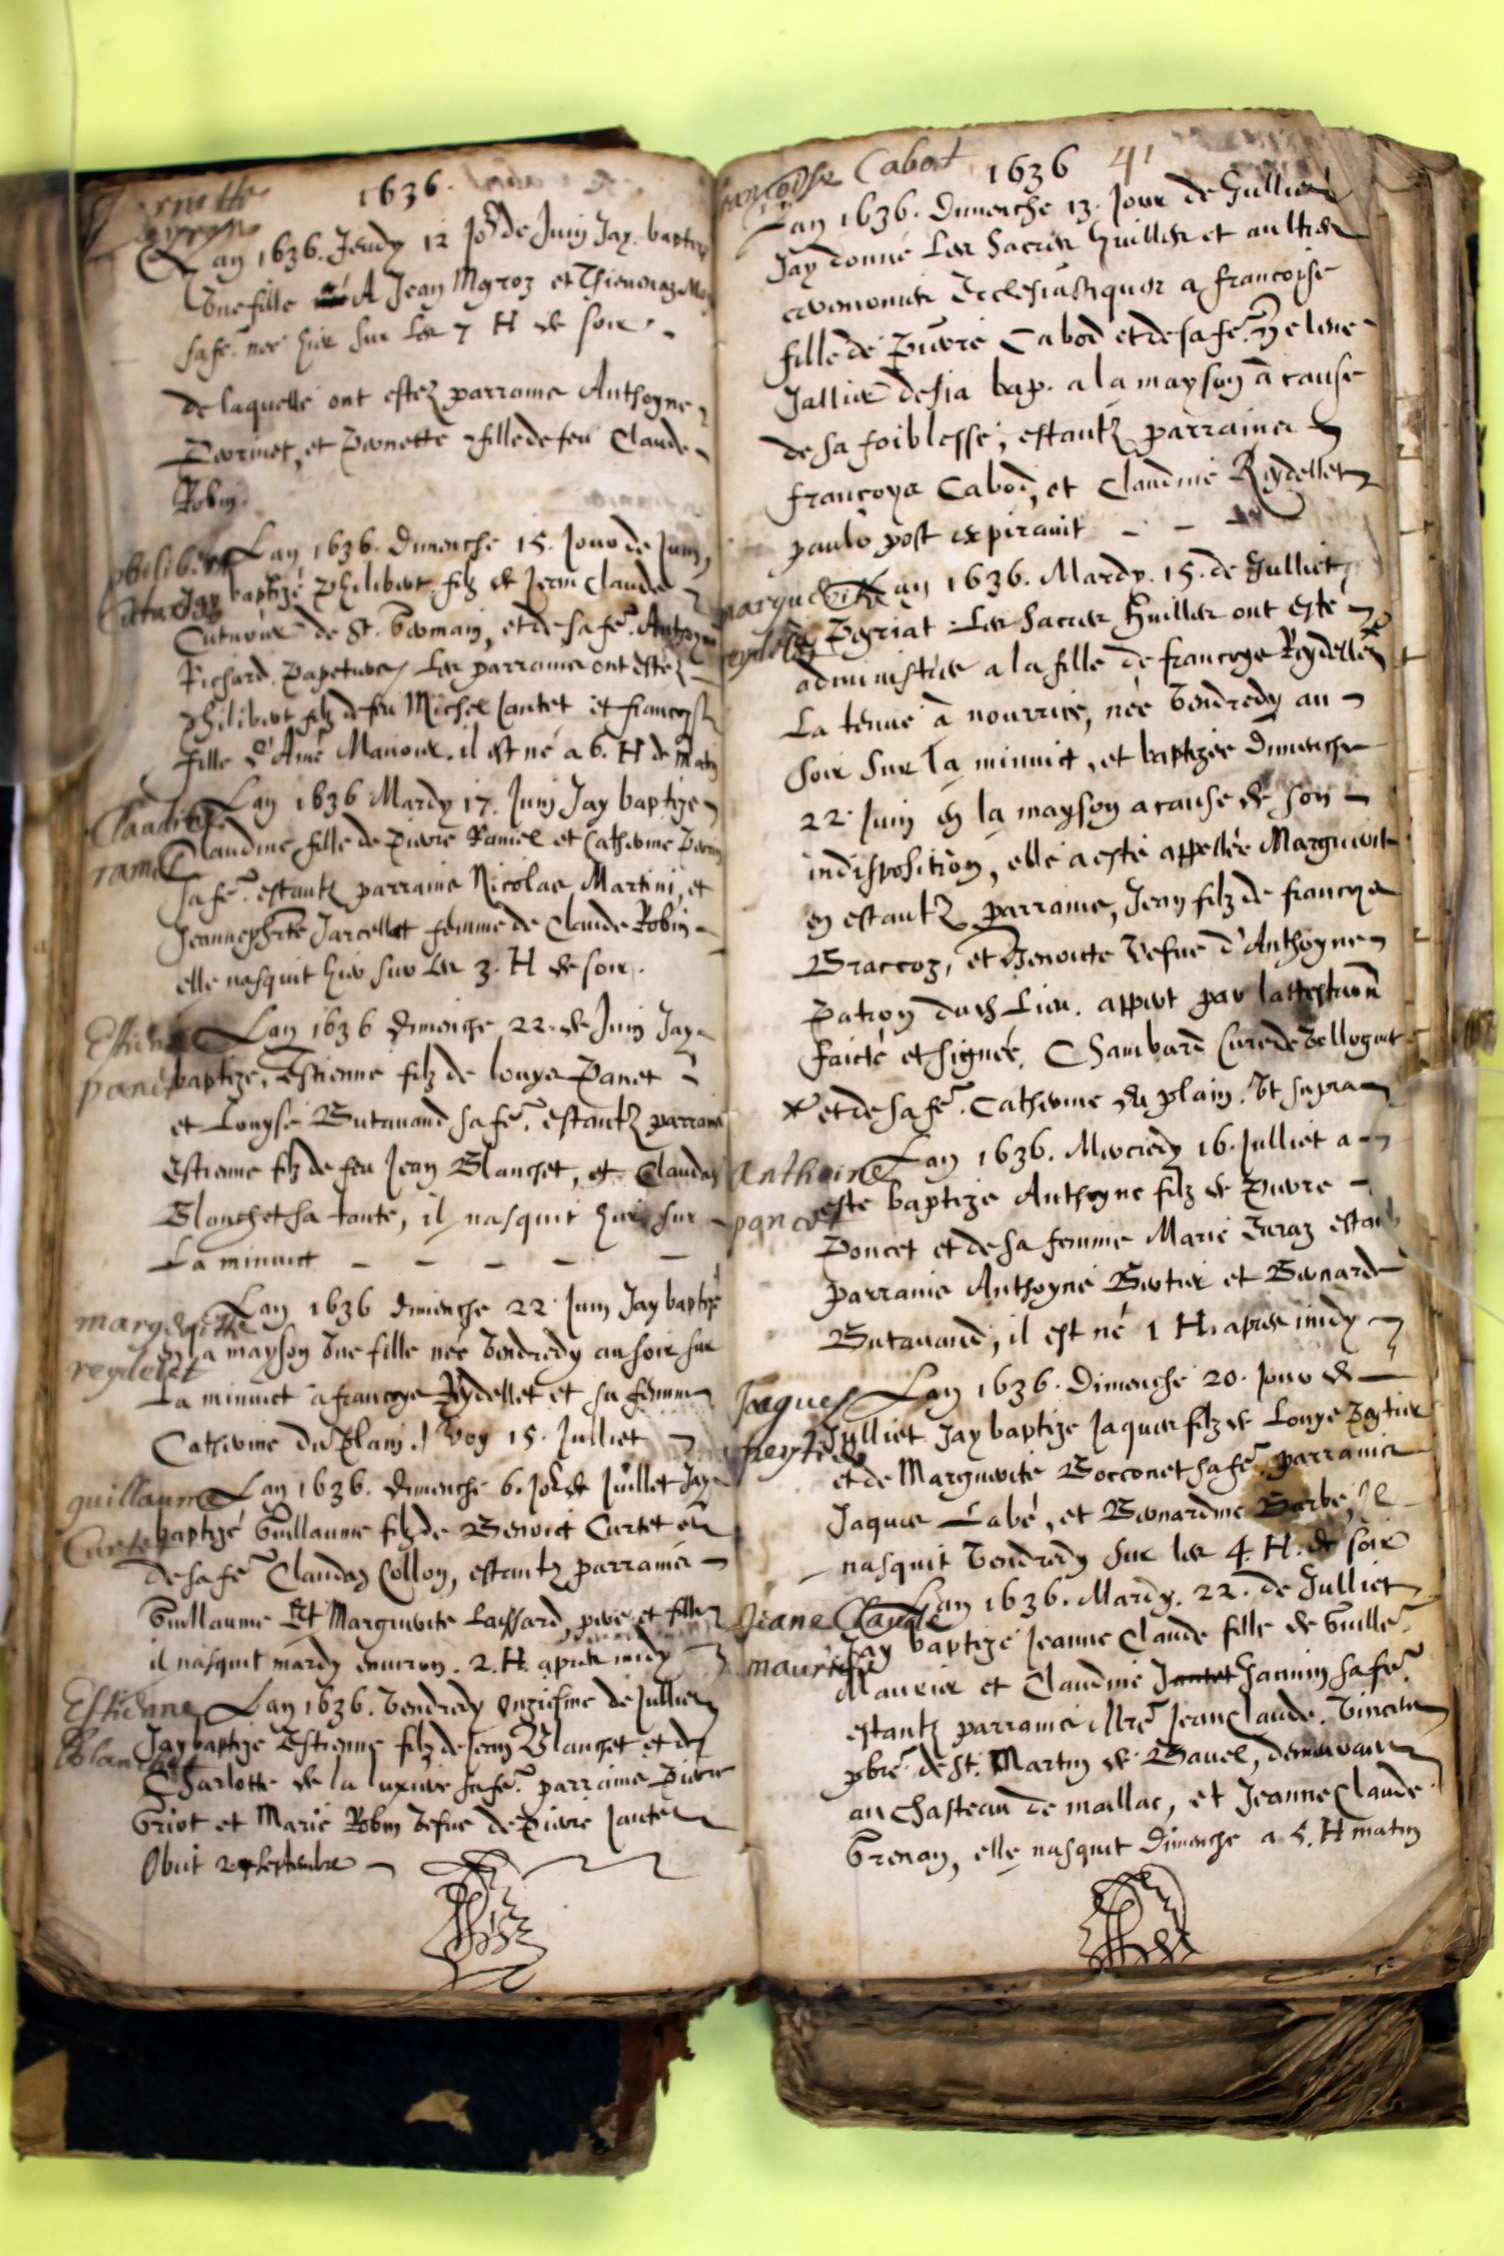 1636.
Lan 1636. Jeudy 12 Jor de Juin Jay baptize
Une fille A Jean Mgroz et
sa fe. née hier sur les 7 H de soir.
de laquelle ont estez parrains Anthoyne
Perrinet, et Pernette fille de feu Claude
Robin.
philibert
Lan 1636. Dimenche 15. Jour de Juin,
Jay baptizé Philibert filz de Jean Claude
de St. Germain, et de sa fe. Anthoyne
Richard. Les parrains ont estez
Philibert filz de feu Michel Jantet et francoyse
fille d'Amé Manour. il est né a 6. H de matin
Lan 1636 Mardy 17. Juin Jay baptize
Claudine
Claudine fille de Pierre Ramel et Catherine
ramel
sa fe. estantz parrains Nicolas Martini, et
Jarcellot femme de Claude Robin
elle nasquit hier sur les 3. H de soir.
Estienne
Lan 1636 dimenche 22. de Juin Jay
panet
baptize, Estienne filz de louys Panet
et Louyse Butavand sa fe. estantz parrains
Estienne filz de feu Jean Blanchet, et Claudaz
Blanchet sa tante, il nasquit hier sur
La minuict
Lan 1636 dimenche 22 Juin Jay baptizé
margueritte
En la mayson Une fille née Vendredy au soir sur
reydelet
La minuict a francoys Reydellet et sa femme
Catherine du Plain. Voy 15. Julliet
guillaume
Lan 1636. dimenche 6. Jor de Juillet Jay
Curtet
baptizé Guillaume filz de Benoict Curtet et
de sa fe. Claudaz Collon, estantz parrains
Guillaume Et Marguerite Laissard, pere et fille
il nasquit mardy environ. 2. H. apres midy
Estienne
Lan 1636. Vendredy Onziesme de Julliet
Jay baptize Estienne filz de Jean Blanchet et de
blanchet
Charlotte de la sa fe. parrains Pierre
Griot et Marie Robin Vefue de Pierre Jantet
Obiit 2 septembre
francoise Cabot 1636 41
Lan 1636. Dimenche 13. Jour de Julliet
Jay donné Les Sacrés huilles et aultres
ceremonies Ecclesiastiques a francoise
fille de Pierre Cabod et de sa fe.
Jallier desia bap. a la mayson à cause
de sa foiblesse, estantz parrains
françoys Cabod, et Claudine Reydellet
paulo post expiravit
marguerite
Lan 1636. Mardy. 15. de Julliet
reydelet
a Peyriat Les Sacres Huilles ont esté
administrés a la fille de francoys Reydellet
La tenue à nourrice, née Vendredy au
soir sur la minuict, et baptizée dimenche
22. Juin En la mayson a cause de son
indisposition, elle a esté appellée Marguerite
en estantz parrains, Jean filz de francoys
Braccoz, et Benoicte Vefue d'Anthoyne
Patron dudit Lieu. appert par lattestation
faicte et signée. Chambard Curé de
et de sa fe. Catherine du plain. Ut supra
Anthoine
Lan 1636. Mercredy 16. Julliet a
esté baptize Anthoyne filz de Pierre
poncet
Poncet et de sa femme Marie Juraz estantz
parrains Anthoyne Bertier et Bernarde
Butavand, il est né 1 H. apres midy
Jaques
Lan 1636. Dimenche 20. Jour de
Julliet Jay baptize Jaques filz de Louys Peytier
peytier
et de Marguerite Bocconet sa fe. parrains
Jaques Labé, et Bernardine Barbe, Il
nasquit Vendredy sur les 4. H. de soir
Lan 1636. Mardy. 22. de Julliet
Jeane Claude
Jay baptizé Jeanne Claude fille de Guille.
maurier
Maurier et Claudine Jantet Jannin sa fe.
estantz parrains Mre. Jean Claude. Vincent
pbre. de St. Martin de Bavel, demeurant
au Chasteau de maillac, et Jeanne Claude
Grenan, elle nasquit Dimenche a 5. H matin